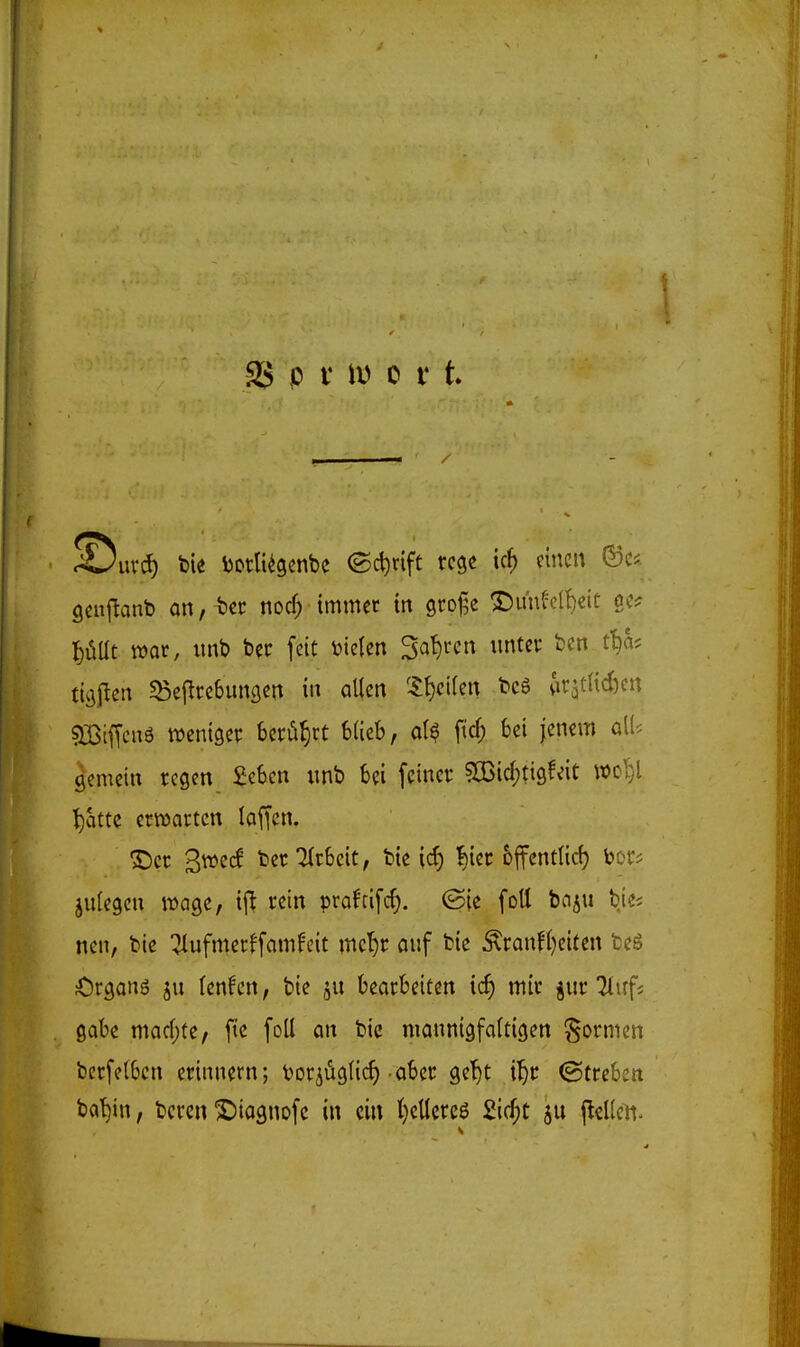 Vorwort.
Durch die vorliegende Schrift rege ich einen Ge-
genstand an, der noch immer in große Dunkelheit ge-
hüllt war, und der seit vielen Jahren unter den thä-
tigsten Bestrebungen in allen Theilen des ärztlichen
Wissens weniger berührt blieb, als sich bei jenem all-
gemein regen Leben und bei seiner Wichtigkeit wohl
hätte erwarten lassen.
Der Zweck der Arbeit, die ich hier öffentlich vor-
zulegen wage, ist rein praktisch. Sie soll dazu die-
nen, die Aufmerksamkeit mehr auf die Krankheiten des
Organs zu lenken, die zu bearbeiten ich mir zur Auf-
gabe machte, sie soll an die mannigfaltigen Formen
derselben erinnern; vorzüglich aber geht ihr Streben
dahin, deren Diagnose in ein helleres Licht zu stellen.